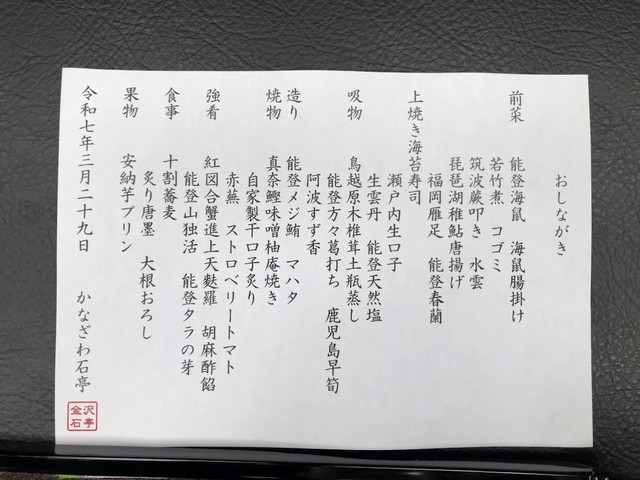 おしながき
前菜 能登海鼠 海鼠腸掛け
若竹煮 コゴミ
筑波蕨叩き 水雲
琵琶湖稚鮎唐揚げ
福岡雁足 能登春蘭
上焼き海苔寿司
瀬戸内生口子
生雲丹 能登天然塩
吸物 鳥越原木椎茸土瓶蒸し
能登方々葛打ち 鹿児島早筍
阿波すず香
造り 能登メジ鮪 マハタ
焼物 真奈鰹味噌柚庵焼き
自家製干口子炙り
赤蕪 ストロベリートマト
強肴 紅図合蟹進上天麩羅 胡麻酢餡
能登山独活 能登タラの芽
食事 十割蕎麦
炙り唐墨 大根おろし
果物 安納芋プリン
令和七年三月二十九日 かなざわ石亭
金沢石亭